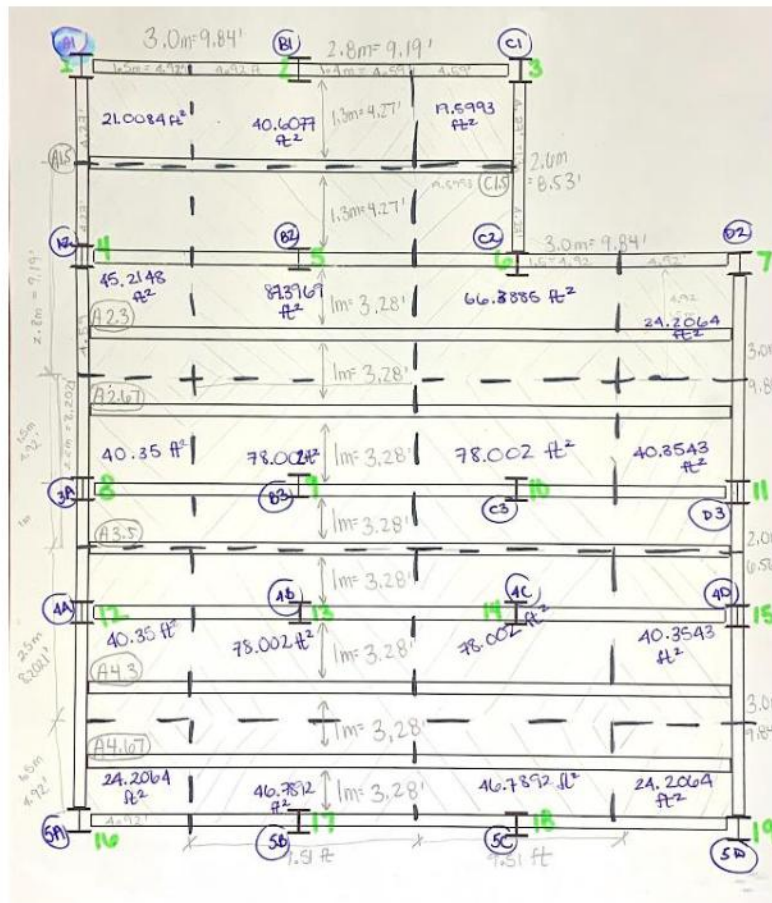 A1
3.0m=9.84'
B1
2.8m=9.19'
C1
1
1.5m=4.92'
4.92 ft
2
1.4m=4.59'
4.59'
3
4.27'
21.0084 ft²
40.6077
ft²
1.3m=4.27'
19.5993
ft²
A1.5
2.6m
=8.53'
C1.5
4.27'
1.3m=4.27'
A2
4
B2
5
C2
6
3.0m=9.84'
D2
4.92'
7
2.8m = 9.19'
45.2148
ft²
87.3969
ft²
1m= 3.28'
66.3885 ft²
4.59
4.92
A2.3
24.2064
ft²
1m= 3.28'
A2.67
40.35 ft²
78.002ft²
1m= 3.28'
78.002 ft²
40.3543
ft²
3A
8
9
B3
10
C3
11
D3
1m= 3.28'
A3.5
1m= 3.28'
4A
12
4B
13
14
4C
4D
15
40.35 ft²
78.002ft²
1m= 3.28'
78.002 ft²
40.3543
ft²
2.5m
8.2021'
A4.3
1m= 3,28'
A4.67
24.2064
ft²
46.7892
ft²
1m= 3.28'
46.7892 ft²
24.2064
ft²
5A
16
4.92'
5B
17
5C
18
19
5D
9.51 ft